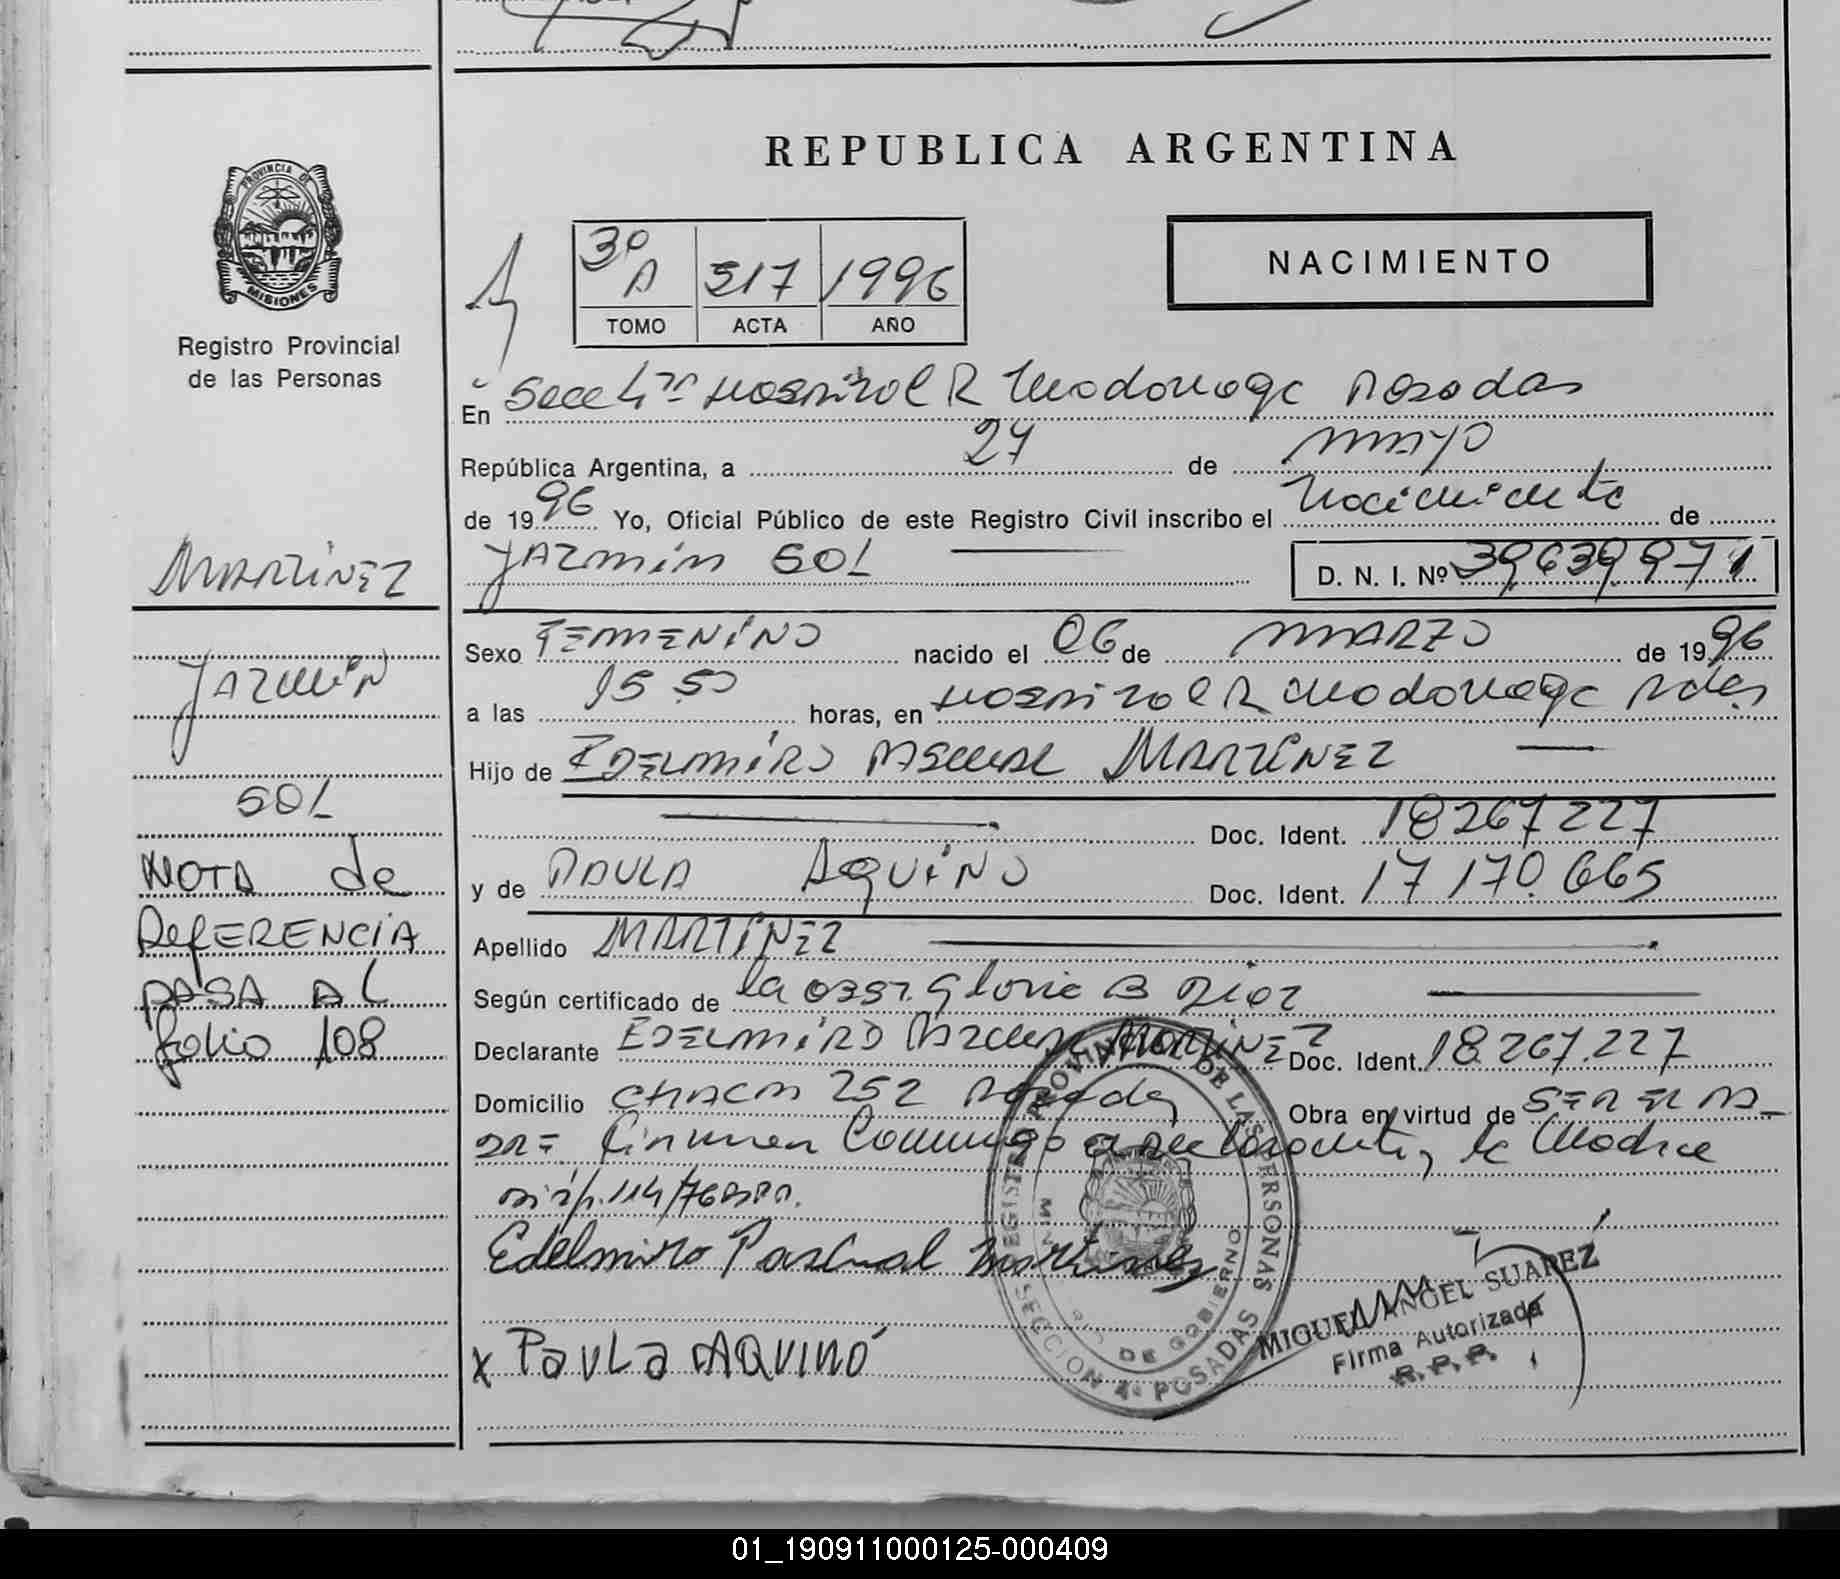 REPUBLICA ARGENTINA
PROVINCIA DE
MISIONES
Registro Provincial
de las Personas
3º A 317 1996
TOMO ACTA AÑO
NACIMIENTO
En Secc 4ta Hospital R Madariaga Posadas
República Argentina, a 27 de MAYO
de 1996 Yo, Oficial Público de este Registro Civil inscribo el Nacimiento de
JAZMIN SOL D. N. I. Nº 39.639.971
MARTINEZ
JAZMIN
SOL
NOTA de
REFERENCIA
PASA AL
folio 108
Sexo FEMENINO nacido el 06 de MARZO de 1996
a las 15 50 horas, en Hospital R Madariaga Pdas
Hijo de EDELMIRO PASCUAL MARTINEZ
Doc. Ident. 18267227
y de PAULA AQUINO Doc. Ident. 17170.665
Apellido MARTINEZ
Según certificado de la obst. Gloria B Diaz
Declarante EDELMIRO PASCUAL MARTINEZ Doc. Ident. 18.267.227
Domicilio CHACO 252 Posadas Obra en virtud de SER EL PA-
DRE Firman Conmigo el declarante, la Madre
114/76
Edelmiro Pascual Martinez
x PaULa AQUINO
REGISTRO PROVINCIAL DE LAS PERSONAS
DE GOBIERNO
SECCION 4ª POSADAS
MIGUEL ANGEL SUAREZ
Firma Autorizada
R. P. P.
01_190911000125-000409